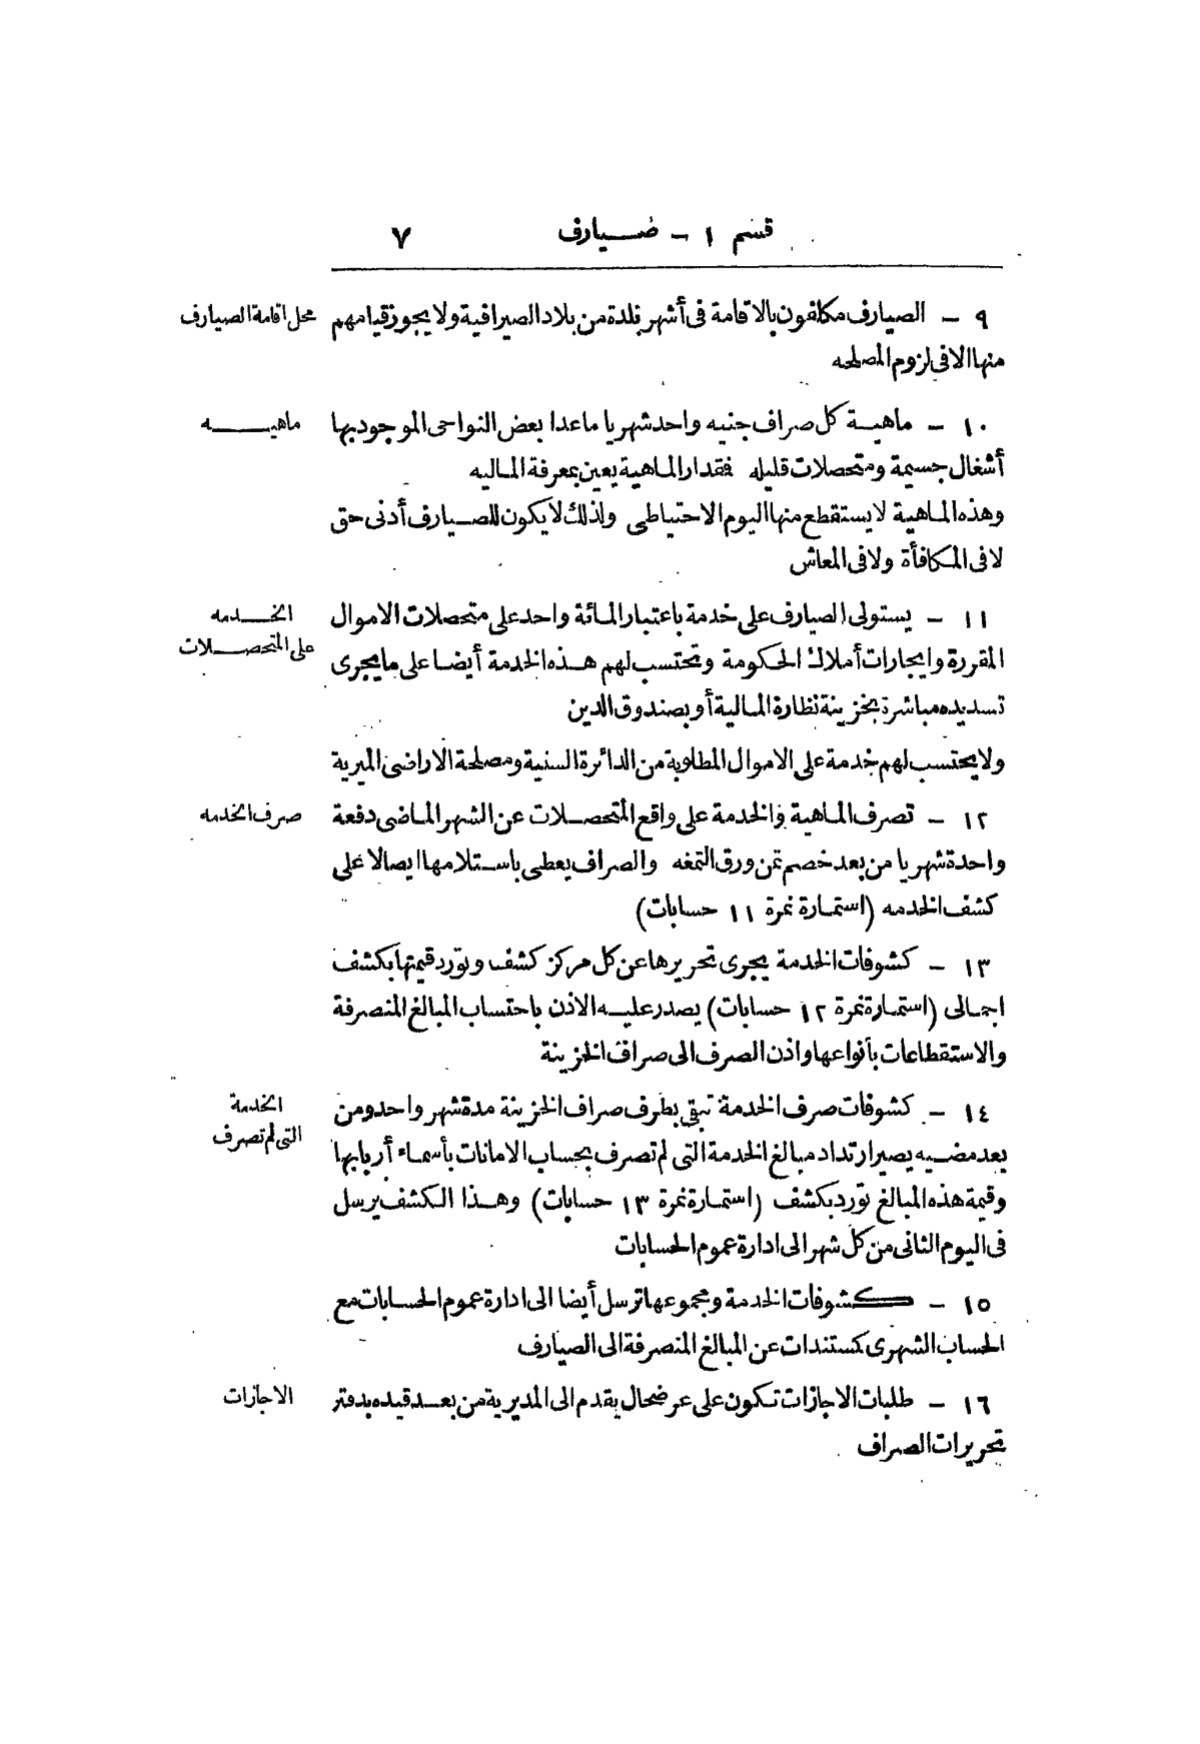 قسم ١ - صيارف ٧
٩ - الصيارف مكلفون بالاقامة فى أشهر بلدة من بلاد الصيرافية ولا يجوز قيامهم
محل اقامة الصيارف
منها الا فى لزوم المصلحه
١٠ - ماهية كل صراف جنيه واحد شهريا ماعدا بعض النواحى الموجود بها
ماهيه
أشغال جسيمة ومتحصلات قليله فمقدار الماهية يعين بمعرفة الماليه
وهذه الماهية لا يستقطع منها اليوم الاحتياطى ولذلك لا يكون للصيارف أدنى حق
لا فى المكافأة ولا فى المعاش
١١ - يستولى الصيارف على خدمة باعتبار المائة واحد على متحصلات الاموال
الخدمه
على المتحصلات
المقررة وايجارات أملاك الحكومة وتحتسب لهم هذه الخدمة أيضا على مايجرى
تسديده مباشرة بخزينة نظارة المالية أو بصندوق الدين
ولا يحتسب لهم خدمة على الاموال المطلوبة من الدائرة السنية ومصلحة الاراضى الميرية
١٢ - تصرف الماهية والخدمة على واقع المتحصلات عن الشهر الماضى دفعة
صرف الخدمه
واحدة شهريا من بعد خصم ثمن ورق التمغه والصراف يعطى باستلامها ايصالا على
كشف الخدمه (استمارة نمرة ١١ حسابات)
١٣ - كشوفات الخدمة يجرى تحريرها عن كل مركز كشف وتورد قيمتها بكشف
اجمالى (استمارة نمرة ١٢ حسابات) يصدر عليه الاذن باحتساب المبالغ المنصرفة
والاستقطاعات بأنواعها واذن الصرف الى صراف الخزينة
١٤ - كشوفات صرف الخدمة تبقى بطرف صراف الخزينة مدة شهر واحد ومن
الخدمة
التى لم تصرف
بعد مضيه يصير ارتداد مبالغ الخدمة التى لم تصرف بحساب الامانات بأسماء أربابها
وقيمة هذه المبالغ تورد بكشف (استمارة نمرة ١٣ حسابات) وهذا الكشف يرسل
فى اليوم الثانى من كل شهر الى ادارة عموم الحسابات
١٥ - كشوفات الخدمة ومجموعها ترسل أيضا الى ادارة عموم الحسابات مع
الحساب الشهرى كمستندات عن المبالغ المنصرفة الى الصيارف
١٦ - طلبات الاجازات تكون على عرضحال يقدم الى المديرية من بعد قيده بدفتر
الاجازات
تحريرات الصراف